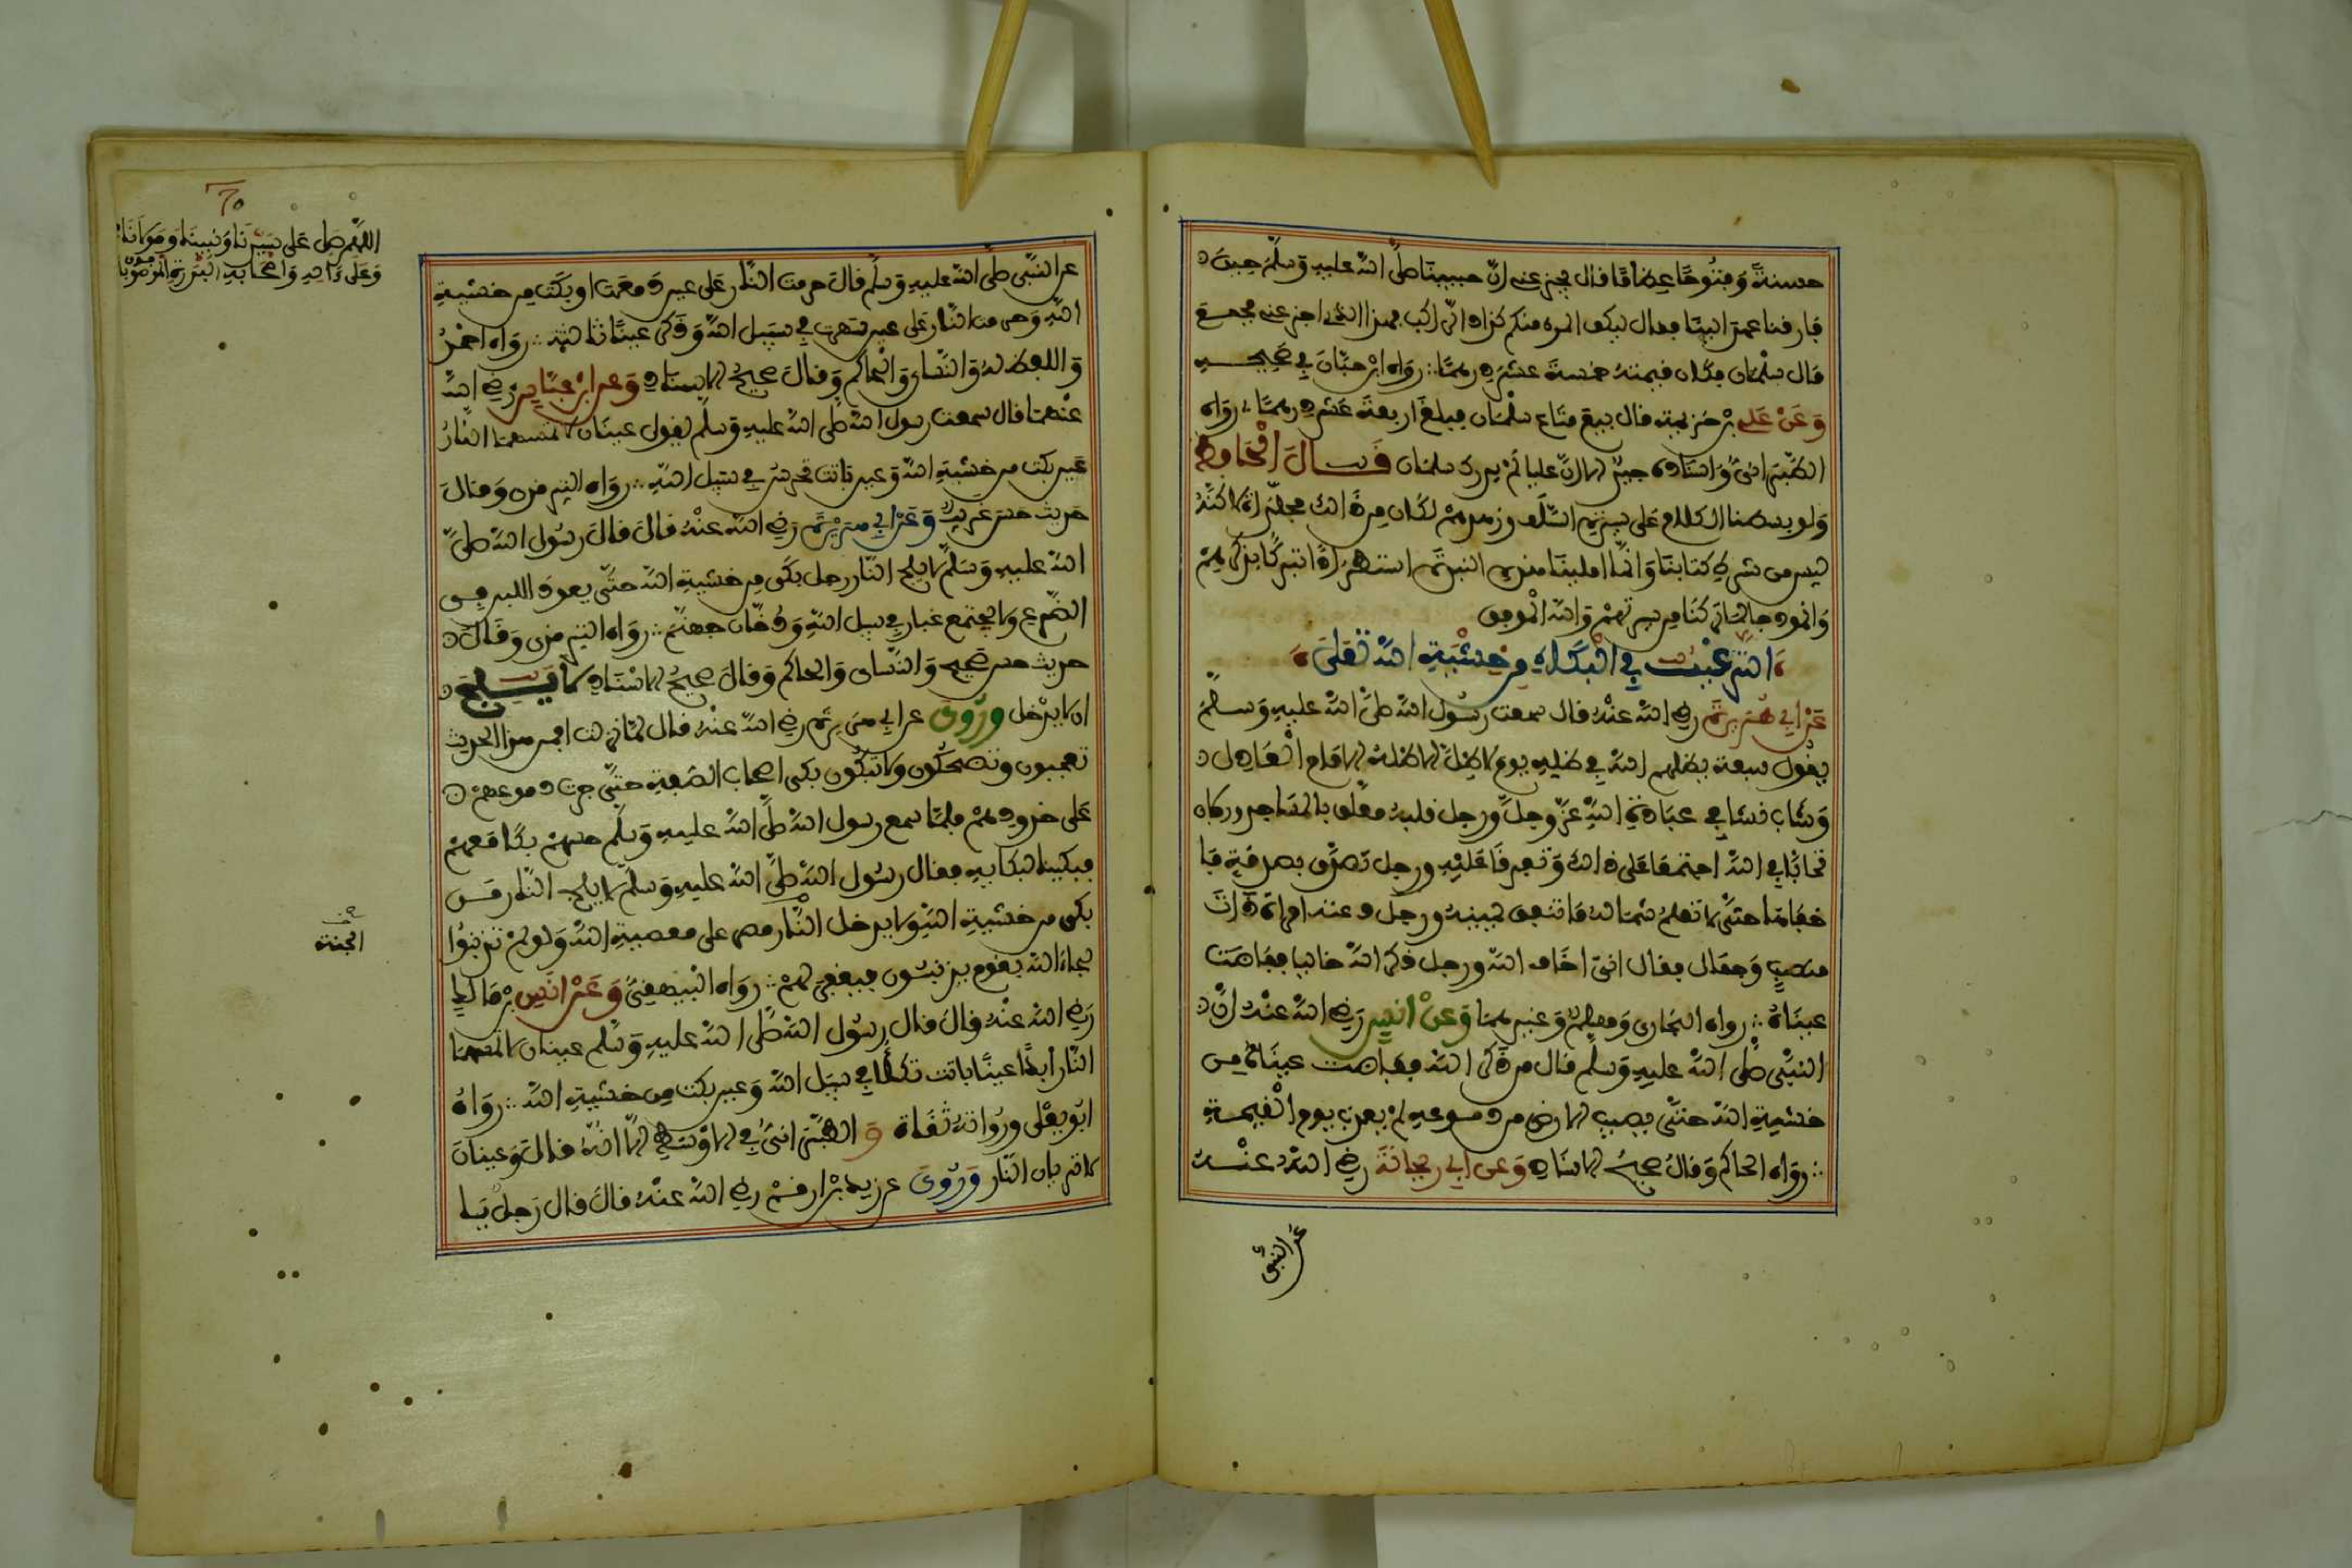 حسنة وفتوحا عظاما فقال يحزنني ان حبيبنا صلى الله عليه وسلم حين
فارفنا عهد الينا فقال ليكف المرء منكم كزاد الراكب فهذا الذي احزنني فجمع
مال سلمان فكان قيمته خمسة عشر درهما رواه ابن حبان في صحيحه
وعن علي بن بذيمة قال بيع متاع سلمان فبلغ اربعة عشر درهما رواه
الطبراني واسناده جيد الا ان عليا لم يدرك سلمان قال الحافظ
ولو بسطنا الكلام على سيرة السلف وزهدهم لكان من ذلك مجلدات لاكنه
ليس من شرط كتابنا وانما املينا هذه النبذة استطرادا تبركا بذكرهم
وانموذجا لما تركنا من سيرتهم والله الموفق
الترغيب في البكاء من خشية الله تعلى
عن ابي هريرة رضي الله عنه قال سمعت رسول الله صلى الله عليه وسلم
يقول سبعة يظلهم الله في ظله يوم لا ظل الا ظله الامام العادل
وشاب نشا في عبادة الله عز وجل ورجل قلبه معلق بالمساجد ورجلان
تحابا في الله اجتمعا على ذلك وتفرقا عليه ورجل تصدق بصدقة فا
خفاها حتى لا تعلم شماله ما تنفق يمينه ورجل دعته امراة ذات
منصب وجمال فقال اني اخاف الله ورجل ذكر الله خاليا ففاضت
عيناه رواه البخاري ومسلم وغيرهما وعن انس رضي الله عنه ان
النبي صلى الله عليه وسلم قال من ذكر الله ففاضت عيناه من
خشية الله حتى يصيب الارض من دموعه لم يعذب يوم القيمة
رواه الحاكم وقال صحيح الاسناد وعن ابي ريحانة رضي الله عنه
عن النبي
اللهم صل على سيدنا ونبينا ومولانا
وعلى ءاله واصحابه
عن النبي صلى الله عليه وسلم قال حرمت النار على عين دمعت او بكت من خشية
الله وحرمت النار على عين سهرت في سبيل الله وذكر عينا ثالثة رواه احمد
واللفظ له والنساي والحاكم وقال صحيح الاسناد وعن ابن عباس رضي الله
عنهما قال سمعت رسول الله صلى الله عليه وسلم يقول عينان لا تمسهما النار
عين بكت من خشية الله وعين باتت تحرس في سبيل الله رواه الترمذي وقال
حديث حسن غريب وعن ابي هريرة رضي الله عنه قال قال رسول الله صلى
الله عليه وسلم لا يلج النار رجل بكى من خشية الله حتى يعود اللبن في
الضرع ولا يجتمع غبار في سبيل الله ودخان جهنم رواه الترمذي وقال
حديث حسن صحيح والنساي والحاكم وقال صحيح الاسناد لا يلج
اي لا يدخل وروي عن ابي هريرة رضي الله عنه قال لما نزلت افمن هذا الحديث
تعجبون وتضحكون ولا تبكون بكى اصحاب الصفة حتى جرت دموعهم
على خدودهم فلما سمع رسول الله صلى الله عليه وسلم حسهم بكا معهم
فبكينا لبكايه فقال رسول الله صلى الله عليه وسلم لا يلج النار من
بكى من خشية الله ولا يدخل النار مصر على معصية الله ولو لم تذنبوا
لجاء الله بقوم يذنبون فيغفر لهم رواه البيهقي وعن انس بن مالك
رضي الله عنه قال قال رسول الله صلى الله عليه وسلم عينان لا تمسهما
النار ابدا عينا باتت تكلا في سبيل الله وعين بكت من خشية الله رواه
ابو يعلى ورواته ثقاة و الطبراني في الاوسط الا انه قال وعينان
لا تريان النار وروي عن زيد بن ارقم رضي الله عنه قال قال رجل يا
الجنة